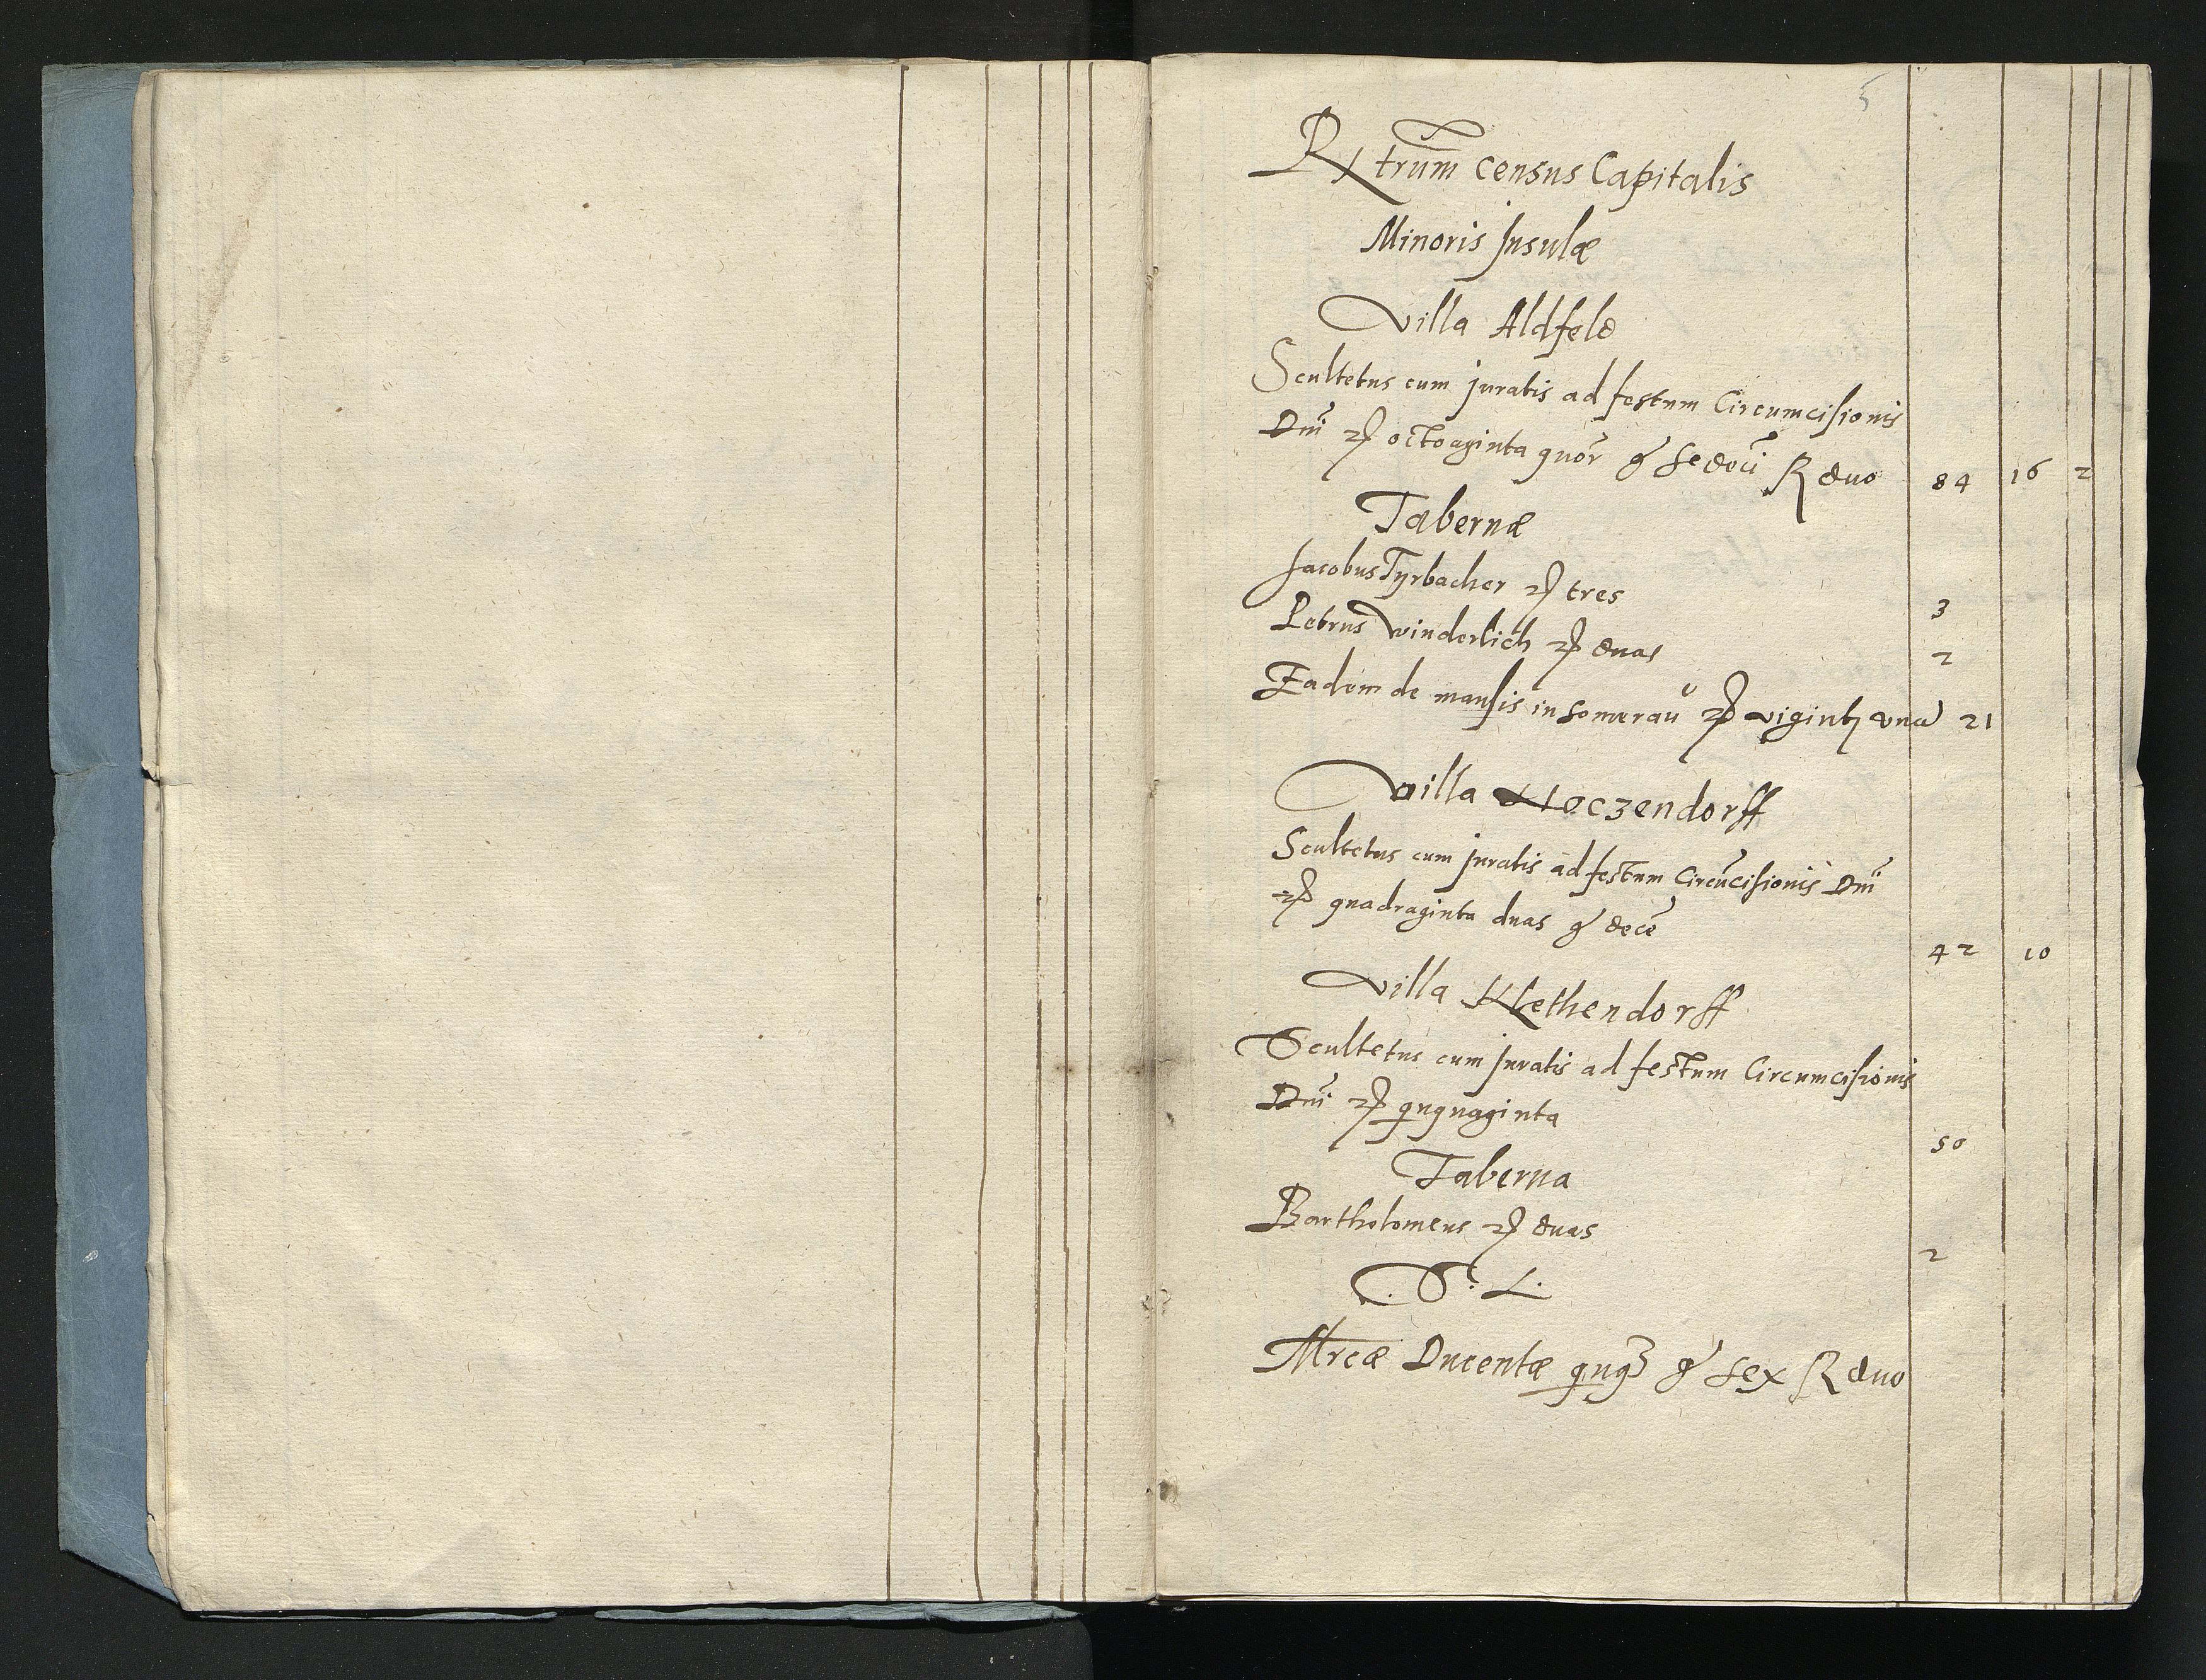 5
Rxtrum census Capitalis
Minoris Insulæ
Villa Aldfeld
Scultetus cum juratis ad festum Circumcisionis
Dni ꝳ octoaginta quor g sedeci ꝶ duo 84 16 2
Tabernæ
Jacobus Tyrbacher ꝳ tres 3
Petrus Winderlich ꝳ duas 2
Eadem de mansis in Somerau ꝳ viginti una 21
Villa Kleczendorff
Scultetus cum juratis ad festum Circucisionis Dni
ꝳ quadraginta duas g dece 42 10
Villa Klethendorff
Scultetus cum juratis ad festum Circumcisionis
Dni ꝳ qnquaginta 50
Taberna
Bartholomeus ꝳ duas 2
S. L.
Mrcæ Ducentæ qnqз g sex ꝶ duo